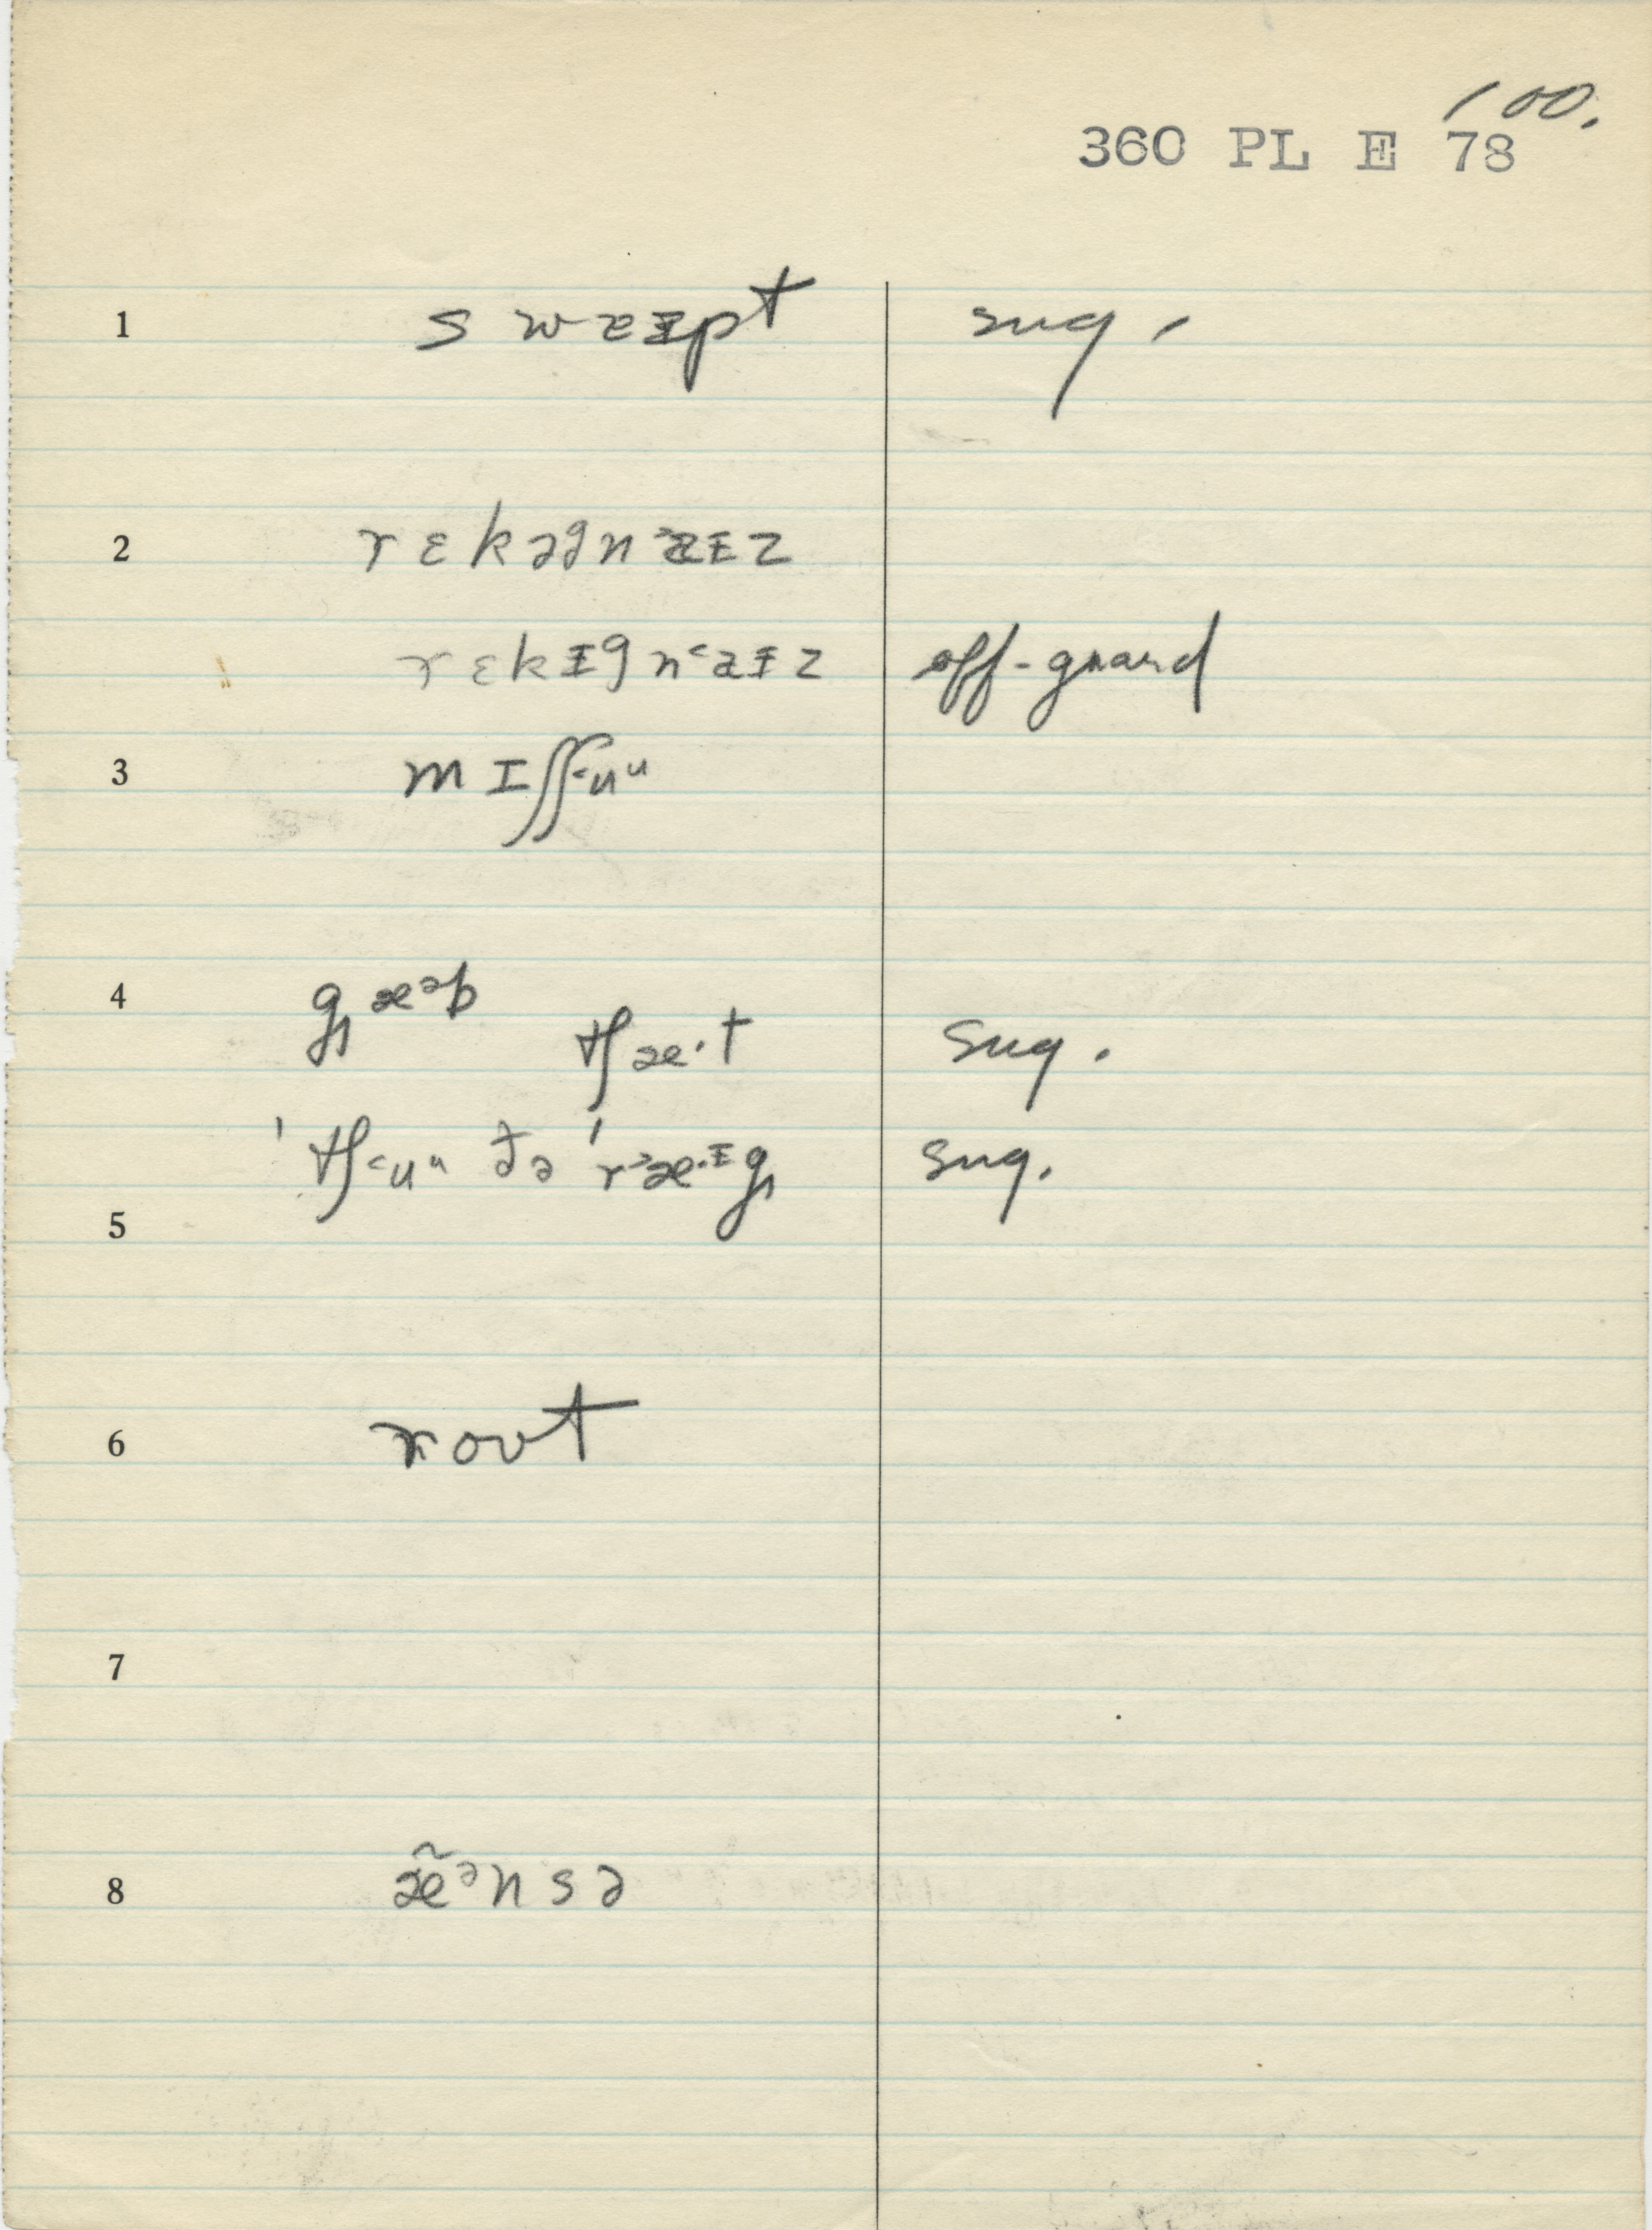 100.
360 PL E 78
1 sweɪpt sug.
2 rɛkəgn˃aɪz
rɛkɪgn˂aɪz off-guard
3 mɪʃʃ˂uᵘ
4 gæᵊb
tʃæ·t sug.
ˈtʃ˂uᵘ ðə ˈr˃æ·ɪg sug.
5
6 rovt
7
8 æ̃ᵊnsə